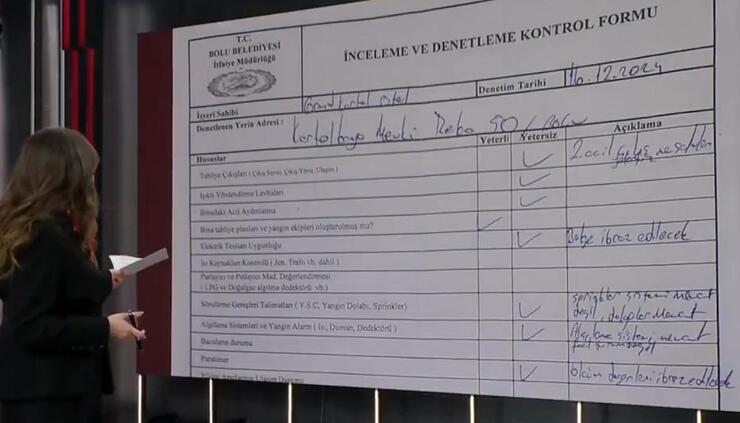 T.C.
BOLU BELEDİYESİ
İtfaiye Müdürlüğü
İNCELEME VE DENETLEME KONTROL FORMU
Denetim Tarihi 16.12.2024
İşyeri Sahibi Grand Kartal Otel
Denetlenen Yerin Adresi : Kartalkaya Mevki
Hususlar Yeterli Yetersiz Açıklama
Tahliye Çıkışları ( Çıkış Sayısı, Çıkış Yönü, Ulaşım ) 2. acil
Işıklı Yönlendirme Levhaları
Binadaki Acil Aydınlatma
Bina tahliye planları ve yangın ekipleri oluşturulmuş mu?
Elektrik Tesisatı Uygunluğu ibraz edilecek
Isı Kaynakları Kontrolü ( Jen. Trafo vb. dahil )
Parlayıcı ve Patlayıcı Mad. Değerlendirmesi
( LPG ve Doğalgaz algılma dedektörü vb.)
Söndürme Gereçleri Talimatları ( Y.S.C, Yangın Dolabı, Sprinkler) sistemi mevcut
değil, dolaplar mevcut
Algılama Sistemleri ve Yangın Alarm ( Isı, Duman, Dedektörü ) Algılama sistemi mevcut
Bacaların durumu
Paratoner ölçüm değerleri ibraz edilecek
İtfaiye Araçlarının Ulaşım Durumu